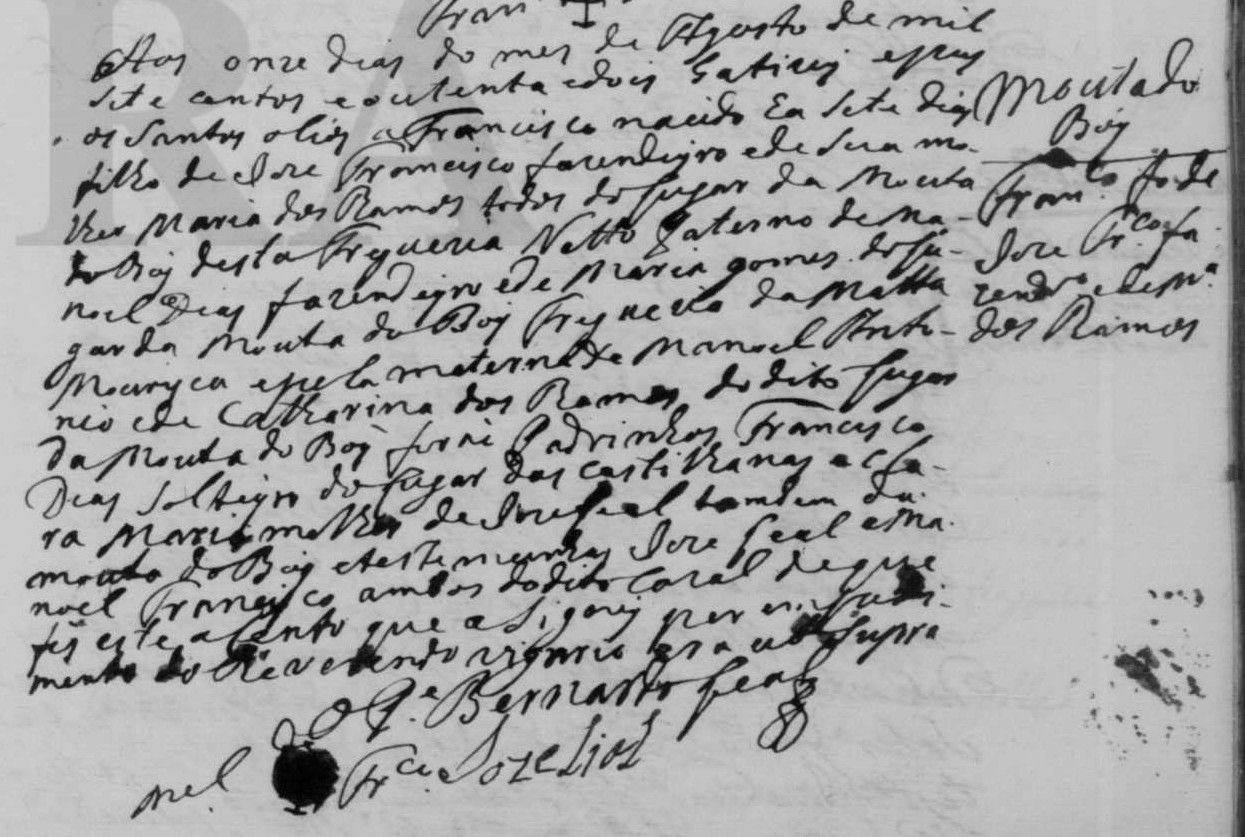 Fran
Aos onze dias do mes de Agosto de mil
sete centos e outenta e dois batizei e pus
os Santos olios a Francisco nacido ha sete dias
filho de Joze Francisco fazendeyro e de sua mo-
lher Maria dos Ramos todos do lugar da Mouta
do Boy desta Freguezia Netto paterno de Ma-
noel Dias fazendeyro e de Maria gomes do lu-
gar da Mouta do Boy Freguezia da Matta
Mourisca e pela materna de Manoel Anto-
nio e de Catharina dos Ramos do dito lugar
da Mouta do Boy forão Padrinhos Francisco
Dias solteyro do lugar das Castilhanas e Cla-
ra Maria molher de Joze Leal tambem da
mouta do Boy e testemunhas Joze Leal e Ma-
noel Francisco ambos do dito Cazal de que
fis este asento que asigney por
mento do Reverendo vigario era ut supra
O P.e Bernardo Leal
Mel. Fr.co Joze Lial
Mouta do
Boy
Fran.co fo. de
Joze Fr.co fa
zendro e de M.a
dos Ramos
RA